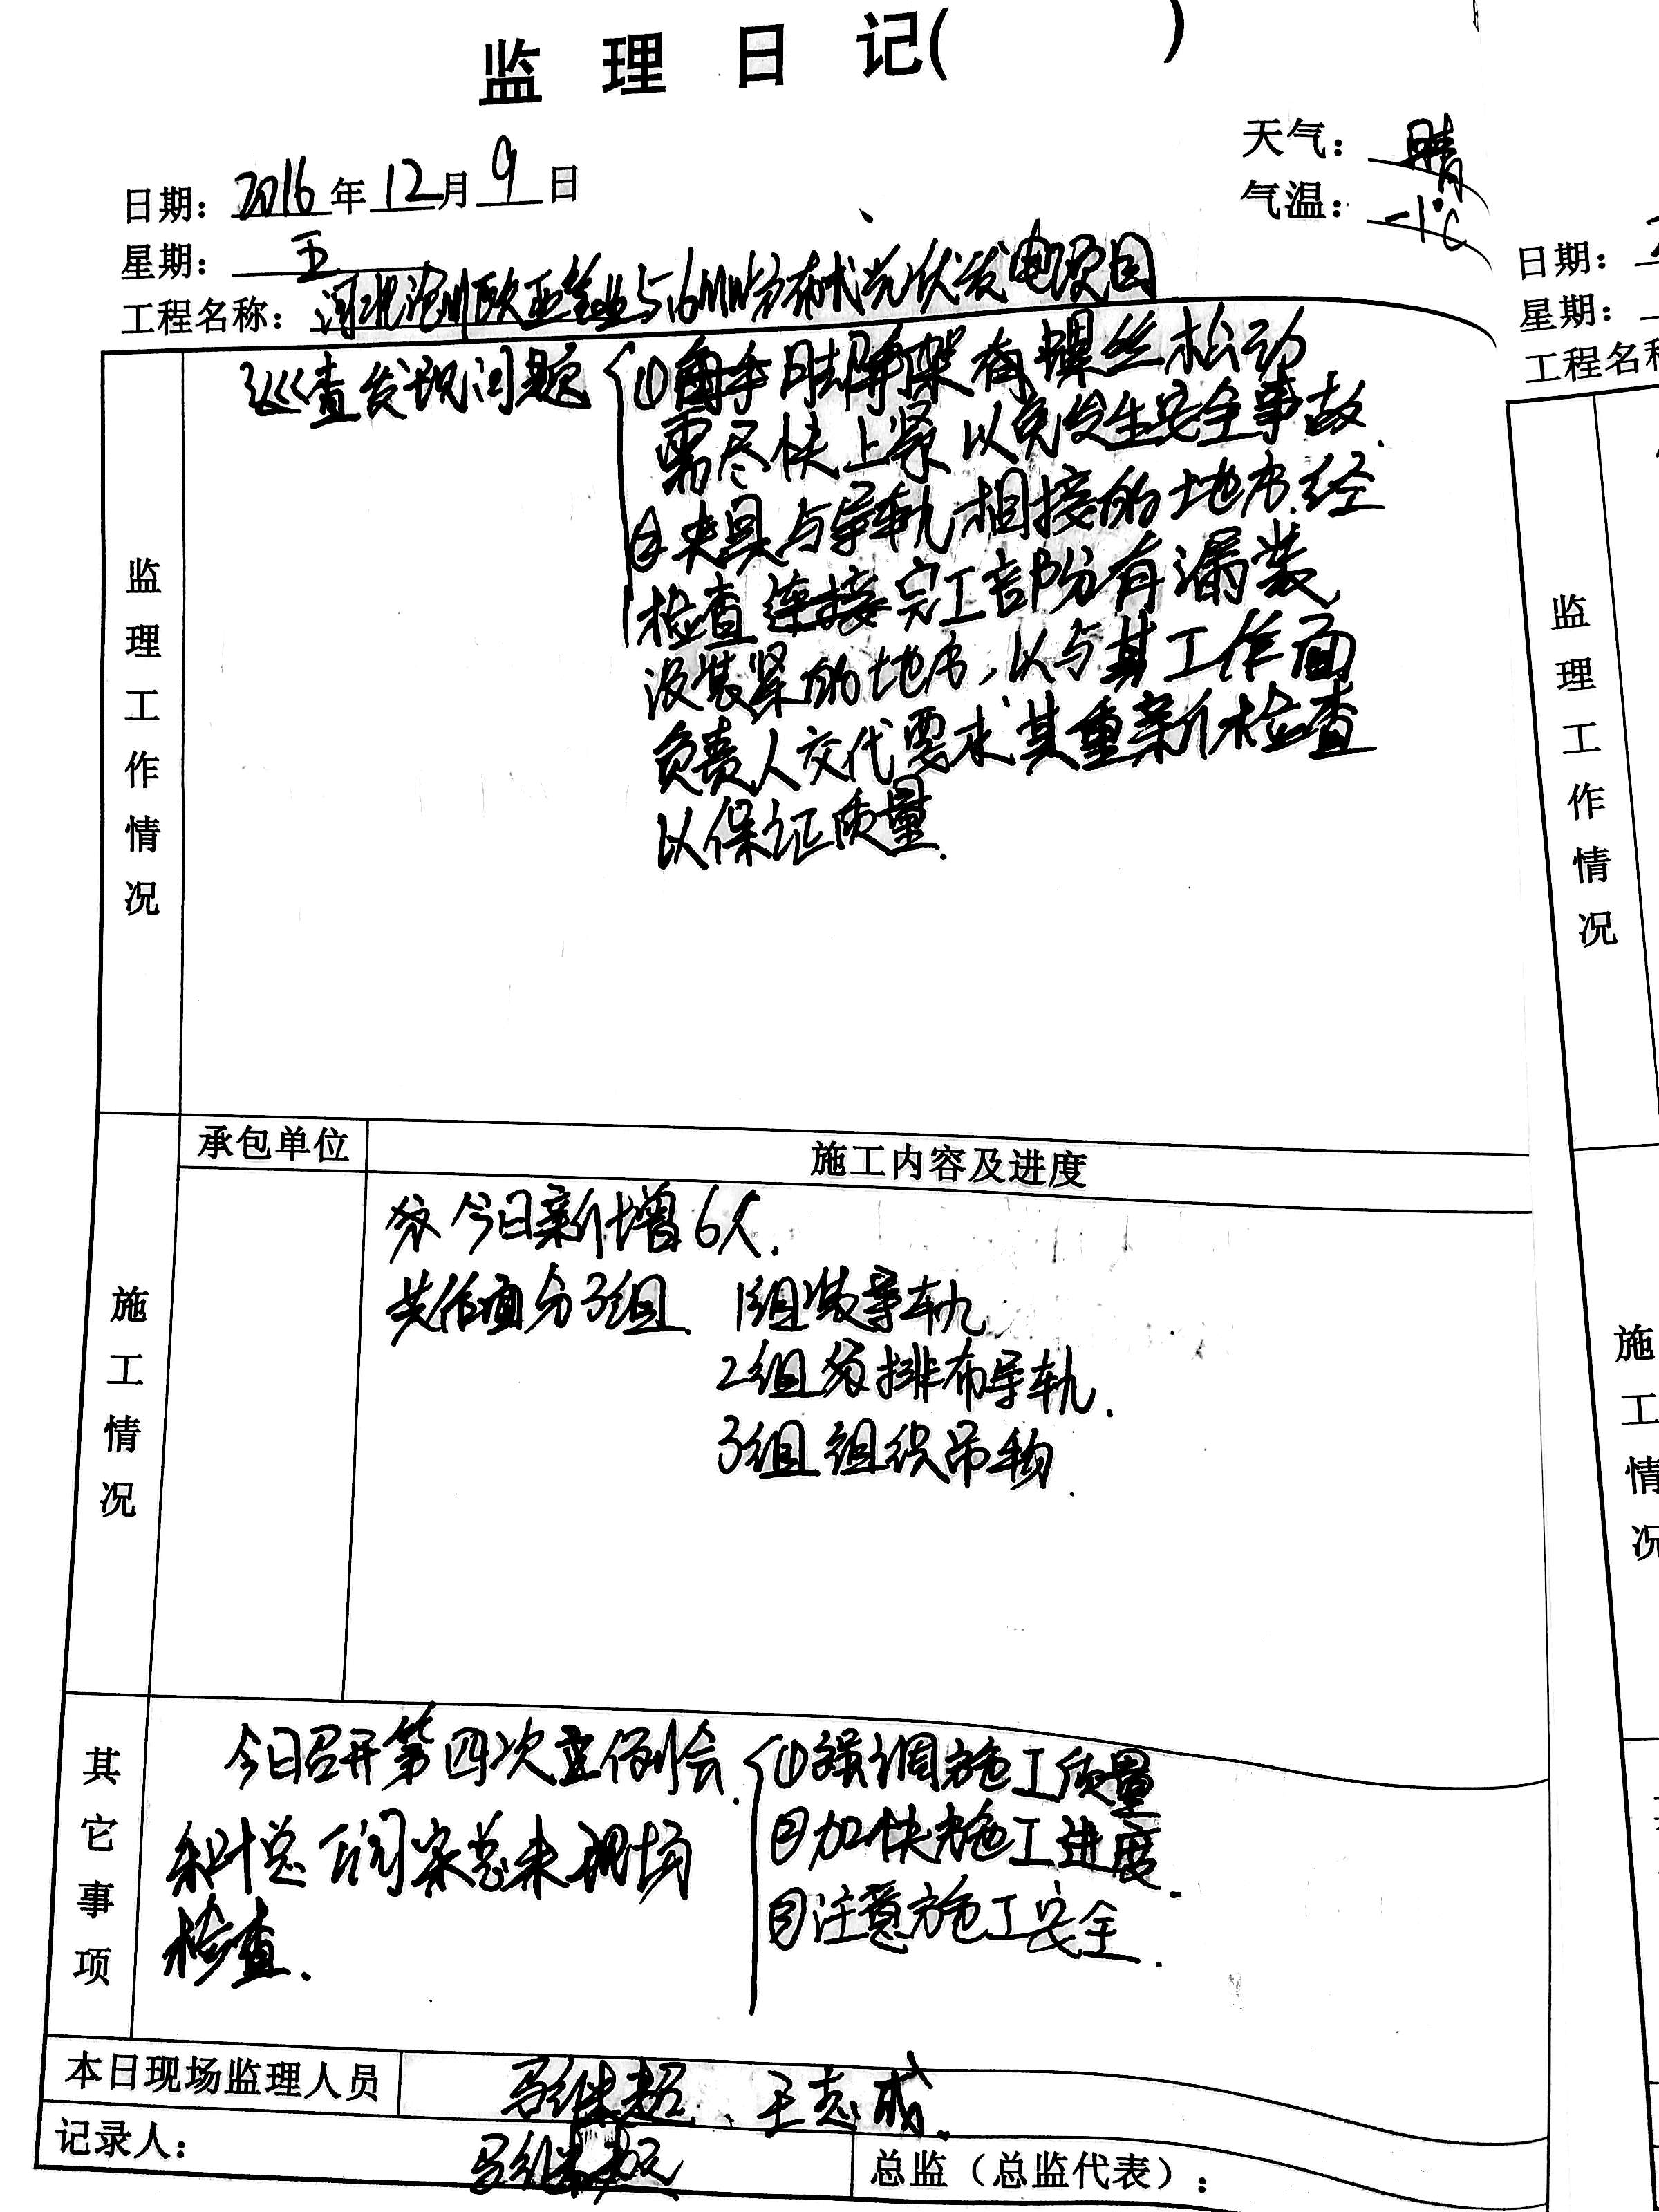 监 理 日 记( )
天气：晴
日期：2016年12月9日
气温：-1℃
星期：五
工程名称：河北沧州欧亚管业5.6MW分布式光伏发电项目
监理工作情况
巡查发现问题 ① 脚手架有螺丝松动
需尽快上紧以免发生安全事故.
② 夹具与导轨相接的地方.经
检查连接完工部份有漏装,
没装紧的地方,以与其工作面
负责人交代要求其重新检查
以保证质量.
承包单位
施工内容及进度
施工情况
今日新增6人.
共作面分3组. 1组装导轨
2组 排布导轨.
3组 组织吊物.
其它事项
今日召开第四次 例会. ①强调施工质量
②加快施工进度.
叶总 总来现场
检查.
③注意施工安全.
本日现场监理人员
马继超、王志成.
记录人：马继超
总监（总监代表）：
日期：
星期：
工程名称
监理工作情况
施工情况